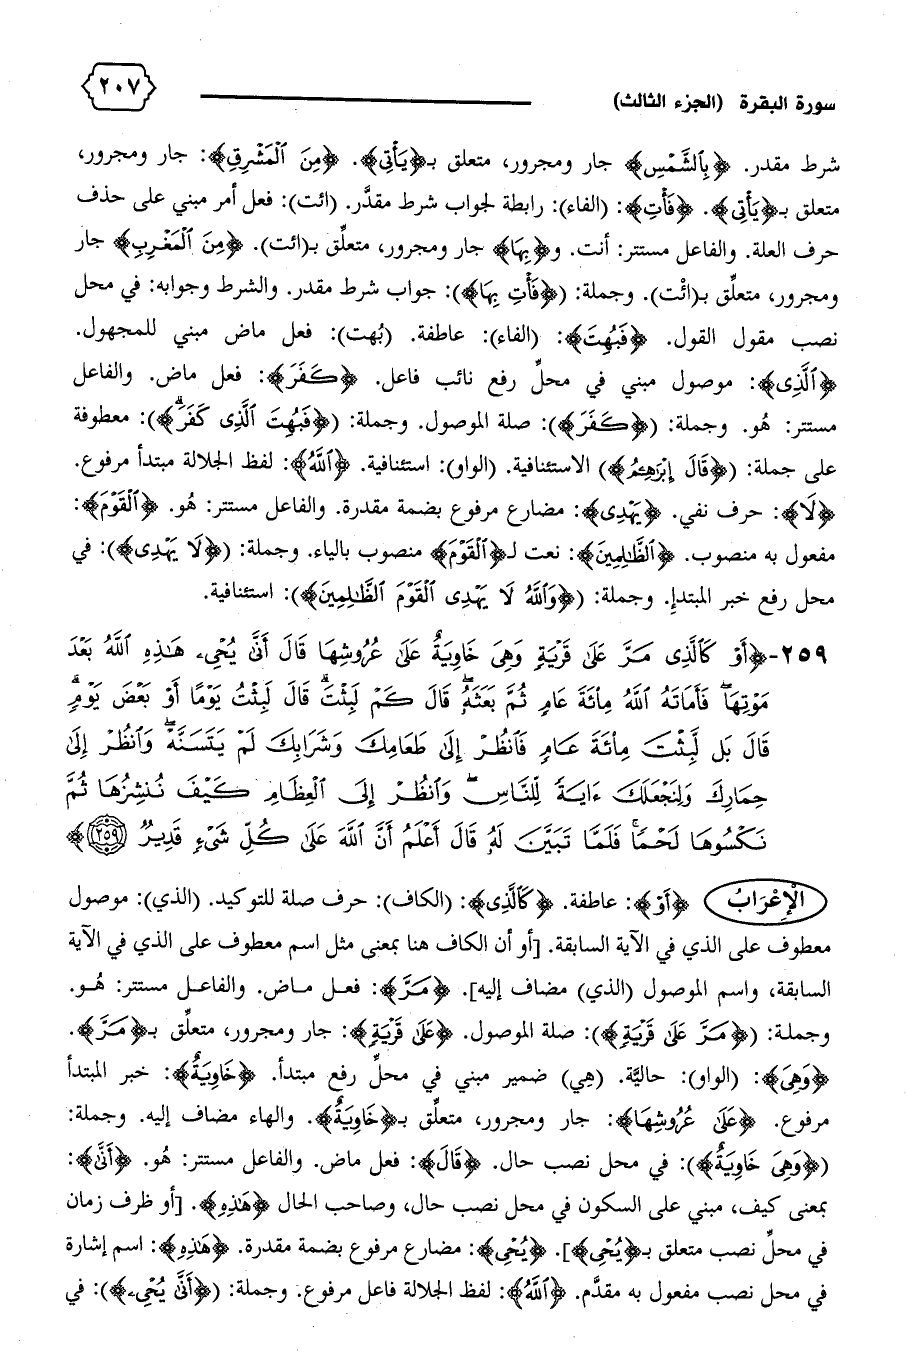 سورة البقرة (الجزء الثالث)
٢٠٧
شرط مقدر. ﴿بِٱلشَّمْسِ﴾ جار ومجرور، متعلق بـ﴿يَأْتِي﴾. ﴿مِنَ ٱلْمَشْرِقِ﴾: جار ومجرور،
متعلق بـ﴿يَأْتِي﴾. ﴿فَأْتِ﴾: (الفاء): رابطة لجواب شرط مقدَّر. (ائت): فعل أمر مبني على حذف
حرف العلة. والفاعل مستتر: أنت. و﴿بِهَا﴾ جار ومجرور، متعلِّق بـ(ائت). ﴿مِنَ ٱلْمَغْرِبِ﴾ جار
ومجرور، متعلِّق بـ(ائْت). وجملة: (﴿فَأْتِ بِهَا﴾): جواب شرط مقدر. والشرط وجوابه: في محل
نصب مقول القول. ﴿فَبُهِتَ﴾: (الفاء): عاطفة. (بُهت): فعل ماض مبني للمجهول.
﴿ٱلَّذِى﴾: موصول مبني في محلِّ رفع نائب فاعل. ﴿كَفَرَ﴾: فعل ماض. والفاعل
مستتر: هُو. وجملة: (﴿كَفَرَ﴾): صلة الموصول. وجملة: (﴿فَبُهِتَ ٱلَّذِى كَفَرَۗ﴾): معطوفة
على جملة: (﴿قَالَ إِبْرَٰهِـۧمُ﴾) الاستئنافية. (الواو): استئنافية. ﴿ٱللَّهُ﴾: لفظ الجلالة مبتدأ مرفوع.
﴿لَا﴾: حرف نفي. ﴿يَهْدِى﴾: مضارع مرفوع بضمة مقدرة. والفاعل مستتر: هُو. ﴿ٱلْقَوْمَ﴾:
مفعول به منصوب. ﴿ٱلظَّٰلِمِينَ﴾: نعت لـ﴿ٱلْقَوْمَ﴾ منصوب بالياء. وجملة: (﴿لَا يَهْدِى﴾): في
محل رفع خبر المبتدإ. وجملة: (﴿وَٱللَّهُ لَا يَهْدِى ٱلْقَوْمَ ٱلظَّٰلِمِينَ﴾): استئنافية.
٢٥٩-﴿أَوْ كَٱلَّذِى مَرَّ عَلَىٰ قَرْيَةٍ وَهِىَ خَاوِيَةٌ عَلَىٰ عُرُوشِهَا قَالَ أَنَّىٰ يُحْىِۦ هَٰذِهِ ٱللَّهُ بَعْدَ
مَوْتِهَاۖ فَأَمَاتَهُ ٱللَّهُ مِا۟ئَةَ عَامٍ ثُمَّ بَعَثَهُۥۖ قَالَ كَمْ لَبِثْتَۖ قَالَ لَبِثْتُ يَوْمًا أَوْ بَعْضَ يَوْمٍۖ
قَالَ بَل لَّبِثْتَ مِا۟ئَةَ عَامٍ فَٱنظُرْ إِلَىٰ طَعَامِكَ وَشَرَابِكَ لَمْ يَتَسَنَّهْۖ وَٱنظُرْ إِلَىٰ
حِمَارِكَ وَلِنَجْعَلَكَ ءَايَةً لِّلنَّاسِۖ وَٱنظُرْ إِلَى ٱلْعِظَامِ كَيْفَ نُنشِزُهَا ثُمَّ
نَكْسُوهَا لَحْمًاۚ فَلَمَّا تَبَيَّنَ لَهُۥ قَالَ أَعْلَمُ أَنَّ ٱللَّهَ عَلَىٰ كُلِّ شَىْءٍ قَدِيرٌ ٢٥٩﴾
الْإِعْرَابُ ﴿أَوْ﴾: عاطفة. ﴿كَٱلَّذِى﴾: (الكاف): حرف صلة للتوكيد. (الذي): موصول
معطوف على الذي في الآية السابقة. [أو أن الكاف هنا بمعنى مثل اسم معطوف على الذي في الآية
السابقة، واسم الموصول (الذي) مضاف إليه]. ﴿مَرَّ﴾: فعل ماض. والفاعل مستتر: هُو.
وجملة: (﴿مَرَّ عَلَىٰ قَرْيَةٍ﴾): صلة الموصول. ﴿عَلَىٰ قَرْيَةٍ﴾: جار ومجرور، متعلِّق بـ﴿مَرَّ﴾.
﴿وَهِىَ﴾: (الواو): حاليَّة. (هِي) ضمير مبني في محلِّ رفع مبتدأ. ﴿خَاوِيَةٌ﴾: خبر المبتدأ
مرفوع. ﴿عَلَىٰ عُرُوشِهَا﴾: جار ومجرور، متعلِّق بـ﴿خَاوِيَةٌ﴾. والهاء مضاف إليه. وجملة:
(﴿وَهِىَ خَاوِيَةٌ﴾): في محل نصب حال. ﴿قَالَ﴾: فعل ماض. والفاعل مستتر: هُو. ﴿أَنَّىٰ﴾:
بمعنى كيف، مبني على السكون في محل نصب حال، وصاحب الحال ﴿هَٰذِهِ﴾. [أو ظرف زمان
في محلِّ نصب متعلق بـ﴿يُحْىِ﴾]. ﴿يُحْىِ﴾: مضارع مرفوع بضمة مقدرة. ﴿هَٰذِهِ﴾: اسم إشارة
في محل نصب مفعول به مقدَّم. ﴿ٱللَّهُ﴾: لفظ الجلالة فاعل مرفوع. وجملة: (﴿أَنَّىٰ يُحْىِۦ﴾): في